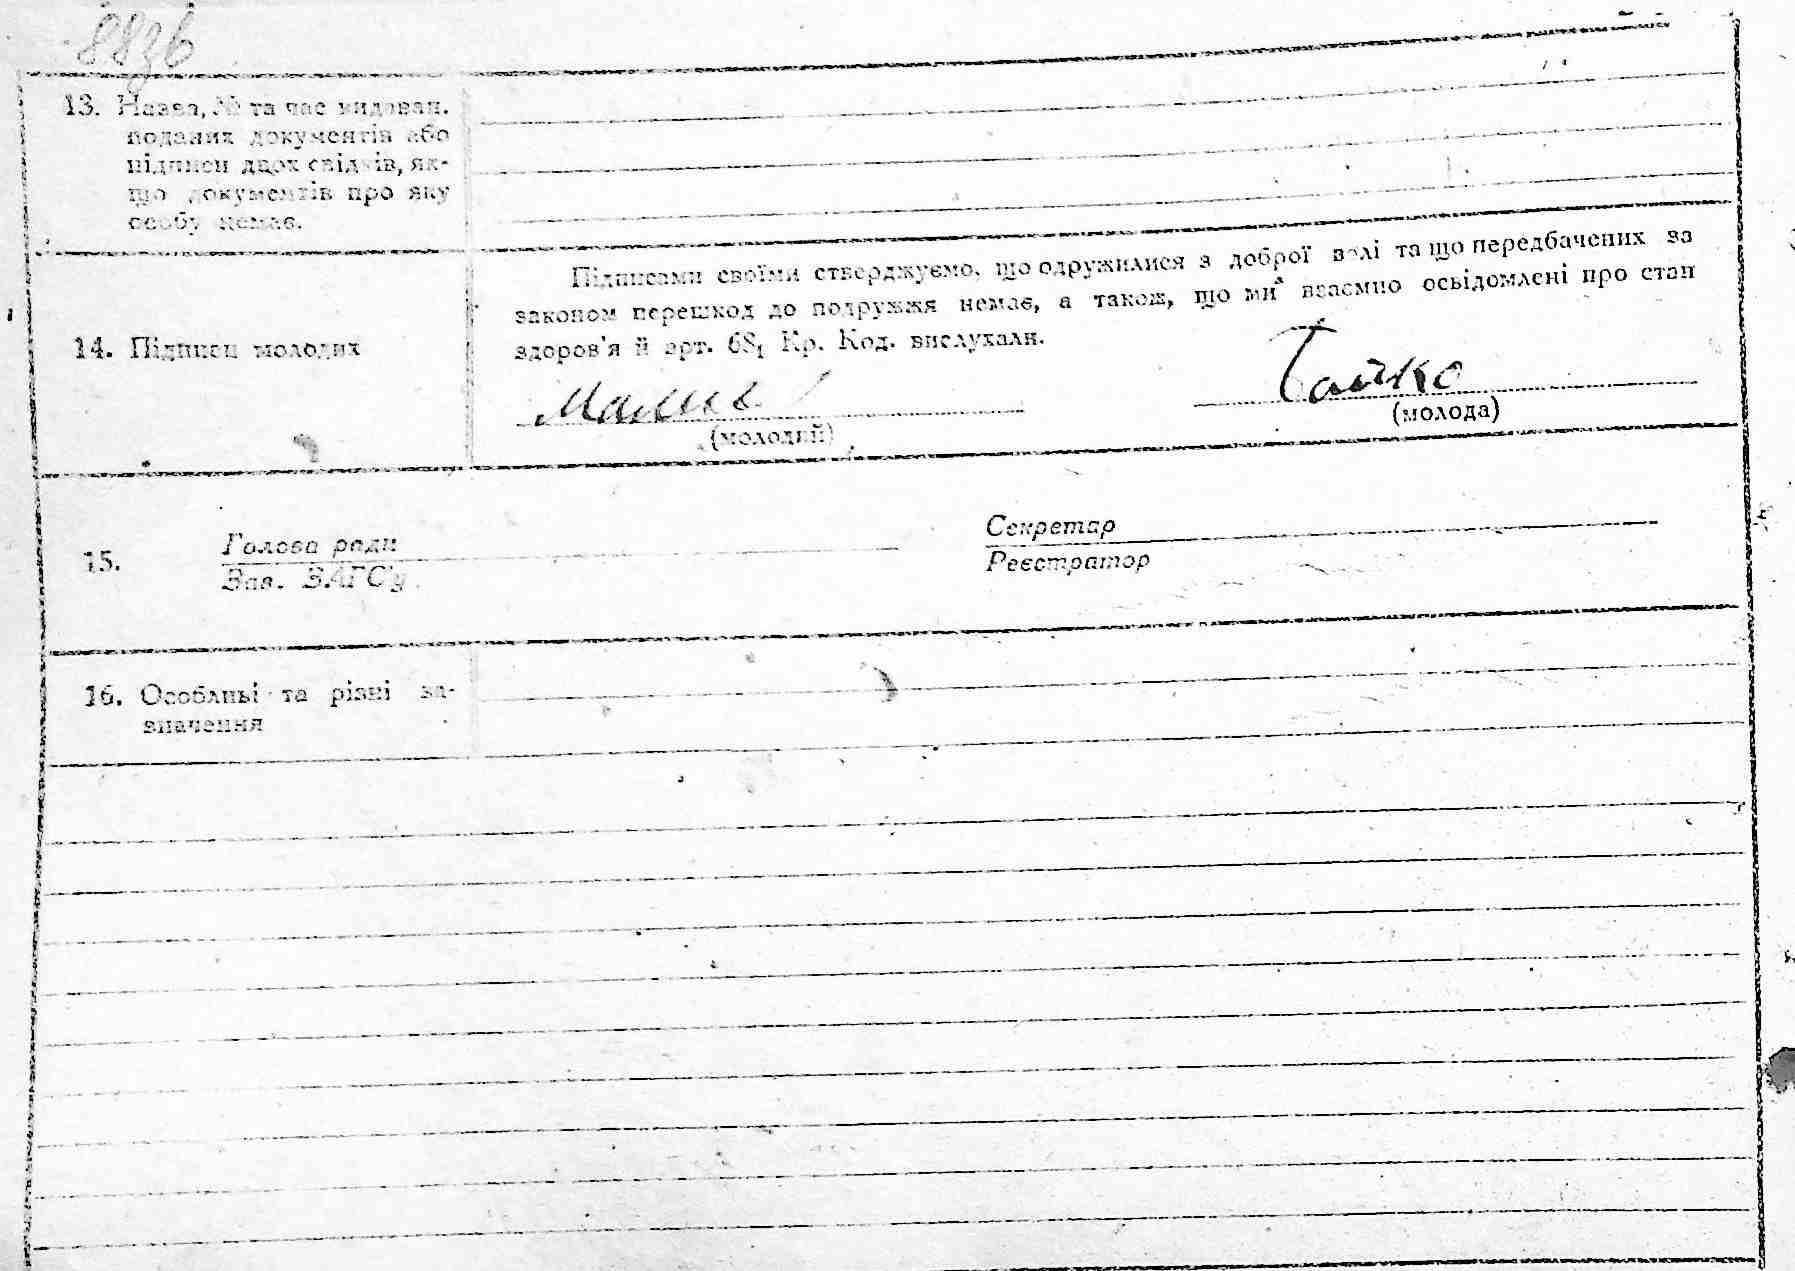 88зв
13. Назва, № та час видован.
поданих документів або
підписи двох свідків, як-
що документів про яку
особу немає.
Підписами своїми стверджуємо, що одружилися з доброї волі та що передбачених за
законом перешкод до подружжя немає, а також, що ми взаємно освідомлені про стан
здоров'я й арт. 68₁ Кр. Код. вислухали.
14. Підписи молодих
Гайко
(молодий)
(молода)
15.
Голова ради
Зав. ЗАГС'у
Секретар
Реєстратор
16. Особливі та різні за-
значення